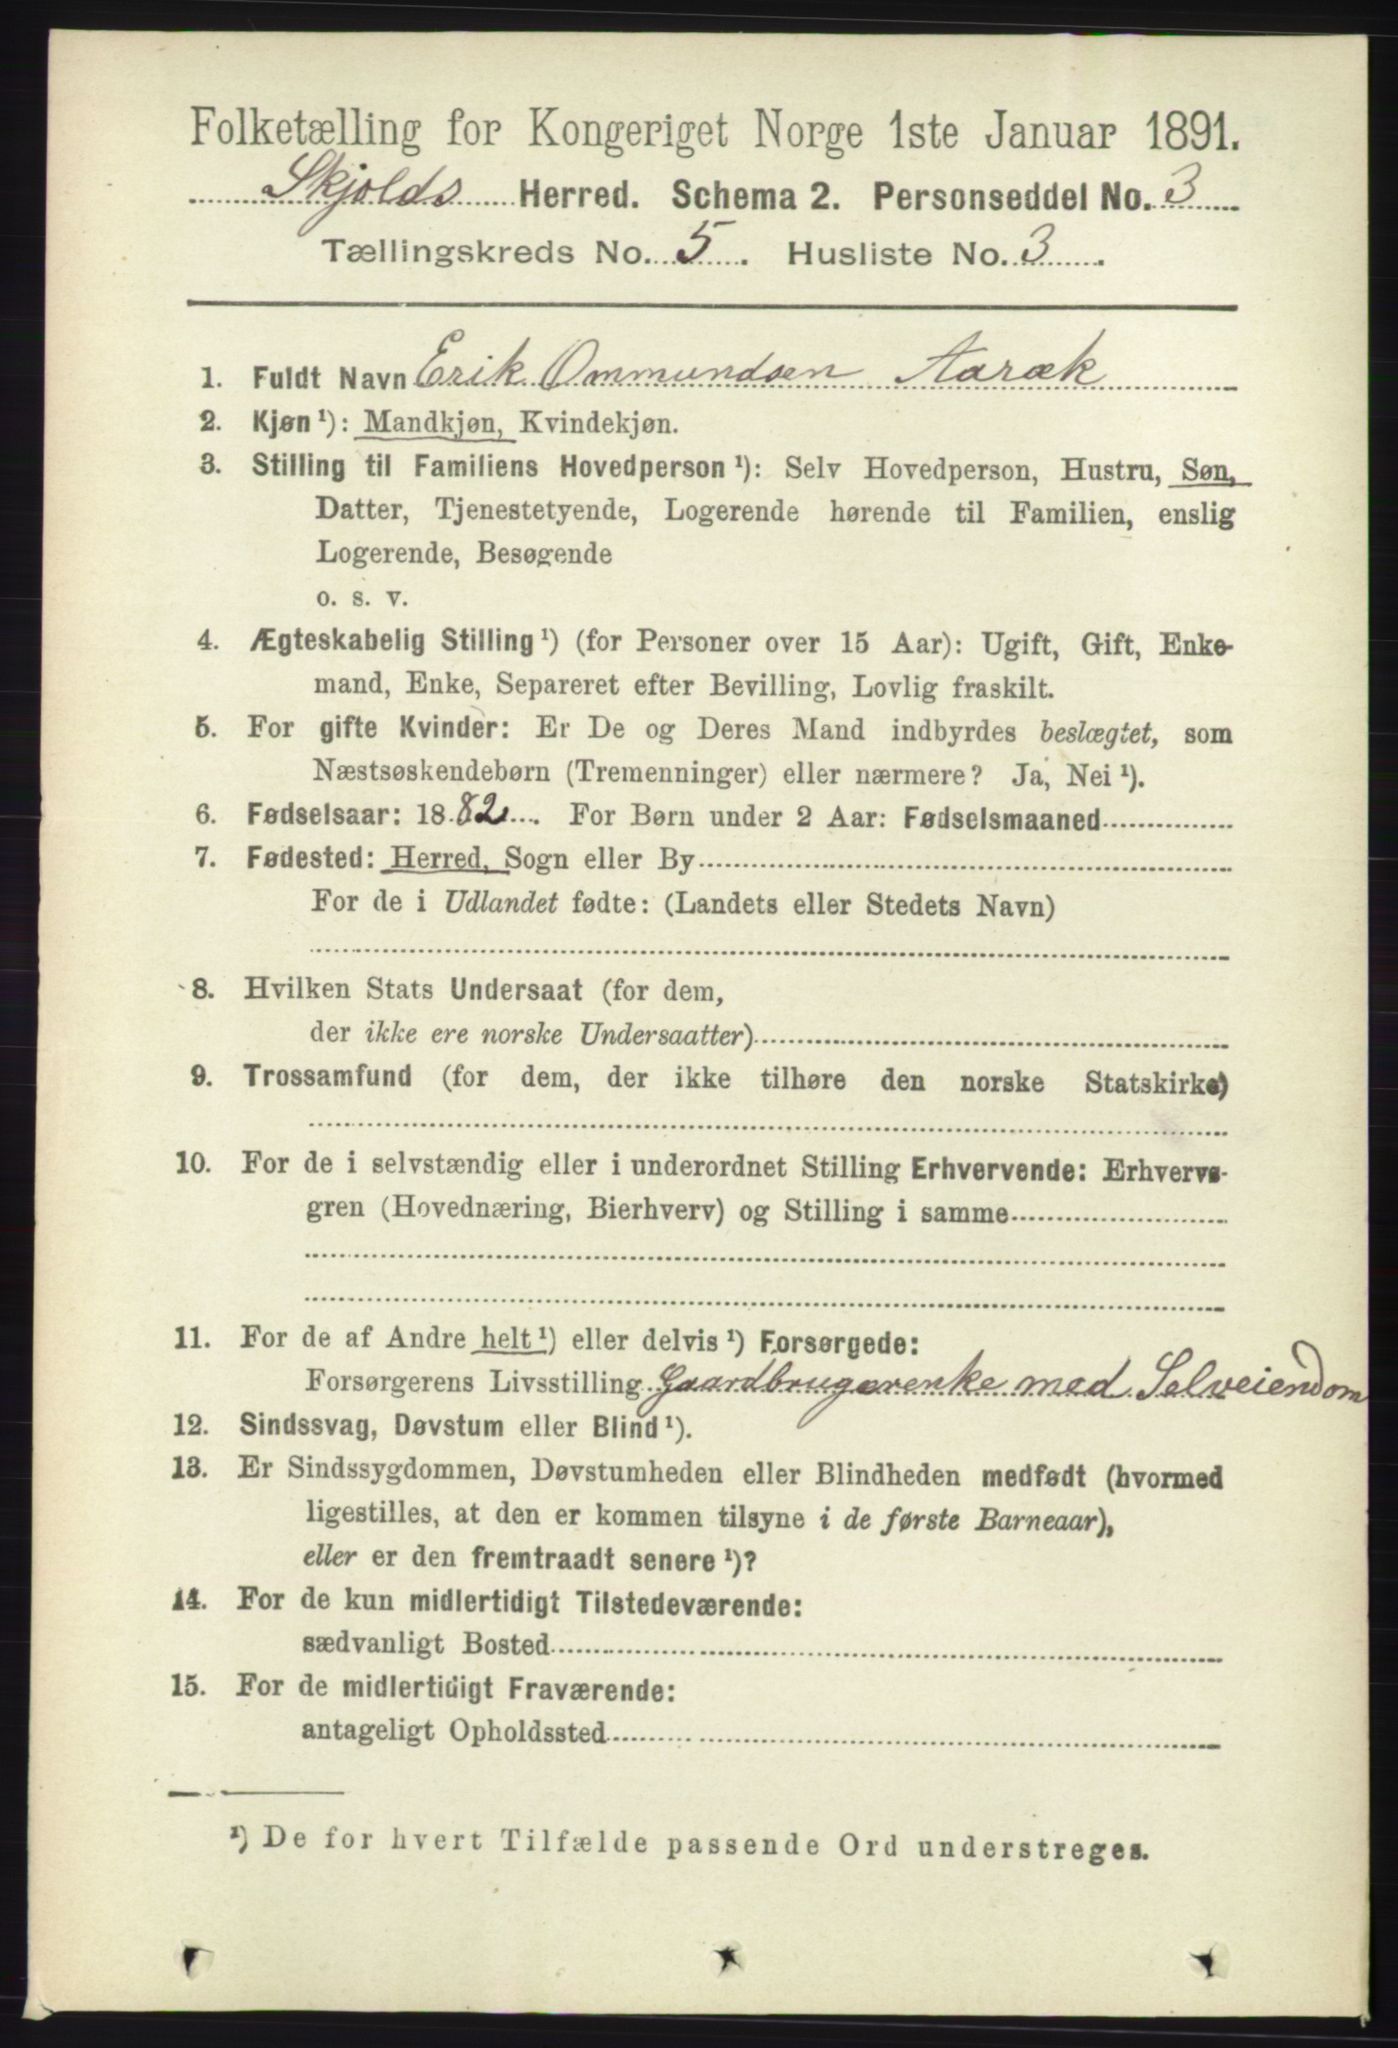 Folketælling for Kongeriget Norge 1ste Januar 1891.
Skjolds Herred. Schema 2. Personseddel No. 3
Tællingskreds No. 5. Husliste No. 3.
1. Fuldt Navn Erik Ommundsen Aaræk
2. Kjøn ¹): Mandkjøn, Kvindekjøn.
3. Stilling til Familiens Hovedperson ¹): Selv Hovedperson, Hustru, Søn,
Datter, Tjenestetyende, Logerende hørende til Familien, enslig
Logerende, Besøgende
o. s. v.
4. Ægteskabelig Stilling ¹) (for Personer over 15 Aar): Ugift, Gift, Enke-
mand, Enke, Separeret efter Bevilling, Lovlig fraskilt.
5. For gifte Kvinder: Er De og Deres Mand indbyrdes beslægtet, som
Næstsøskendebørn (Tremenninger) eller nærmere? Ja, Nei ¹).
6. Fødselsaar: 1882. For Børn under 2 Aar: Fødselsmaaned
7. Fødested: Herred, Sogn eller By
For de i Udlandet fødte: (Landets eller Stedets Navn)
8. Hvilken Stats Undersaat (for dem,
der ikke ere norske Undersaatter)
9. Trossamfund (for dem, der ikke tilhøre den norske Statskirke)
10. For de i selvstændig eller i underordnet Stilling Erhvervende: Erhvervs-
gren (Hovednæring, Bierhverv) og Stilling i samme
11. For de af Andre helt ¹) eller delvis ¹) Forsørgede:
Forsørgerens Livsstilling Gaardbrugerenke med Selveiendom
12. Sindssvag, Døvstum eller Blind ¹).
13. Er Sindssygdommen, Døvstumheden eller Blindheden medfødt (hvormed
ligestilles, at den er kommen tilsyne i de første Barneaar),
eller er den fremtraadt senere ¹)?
14. For de kun midlertidigt Tilstedeværende:
sædvanligt Bosted
15. For de midlertidigt Fraværende:
antageligt Opholdssted
¹) De for hvert Tilfælde passende Ord understreges.